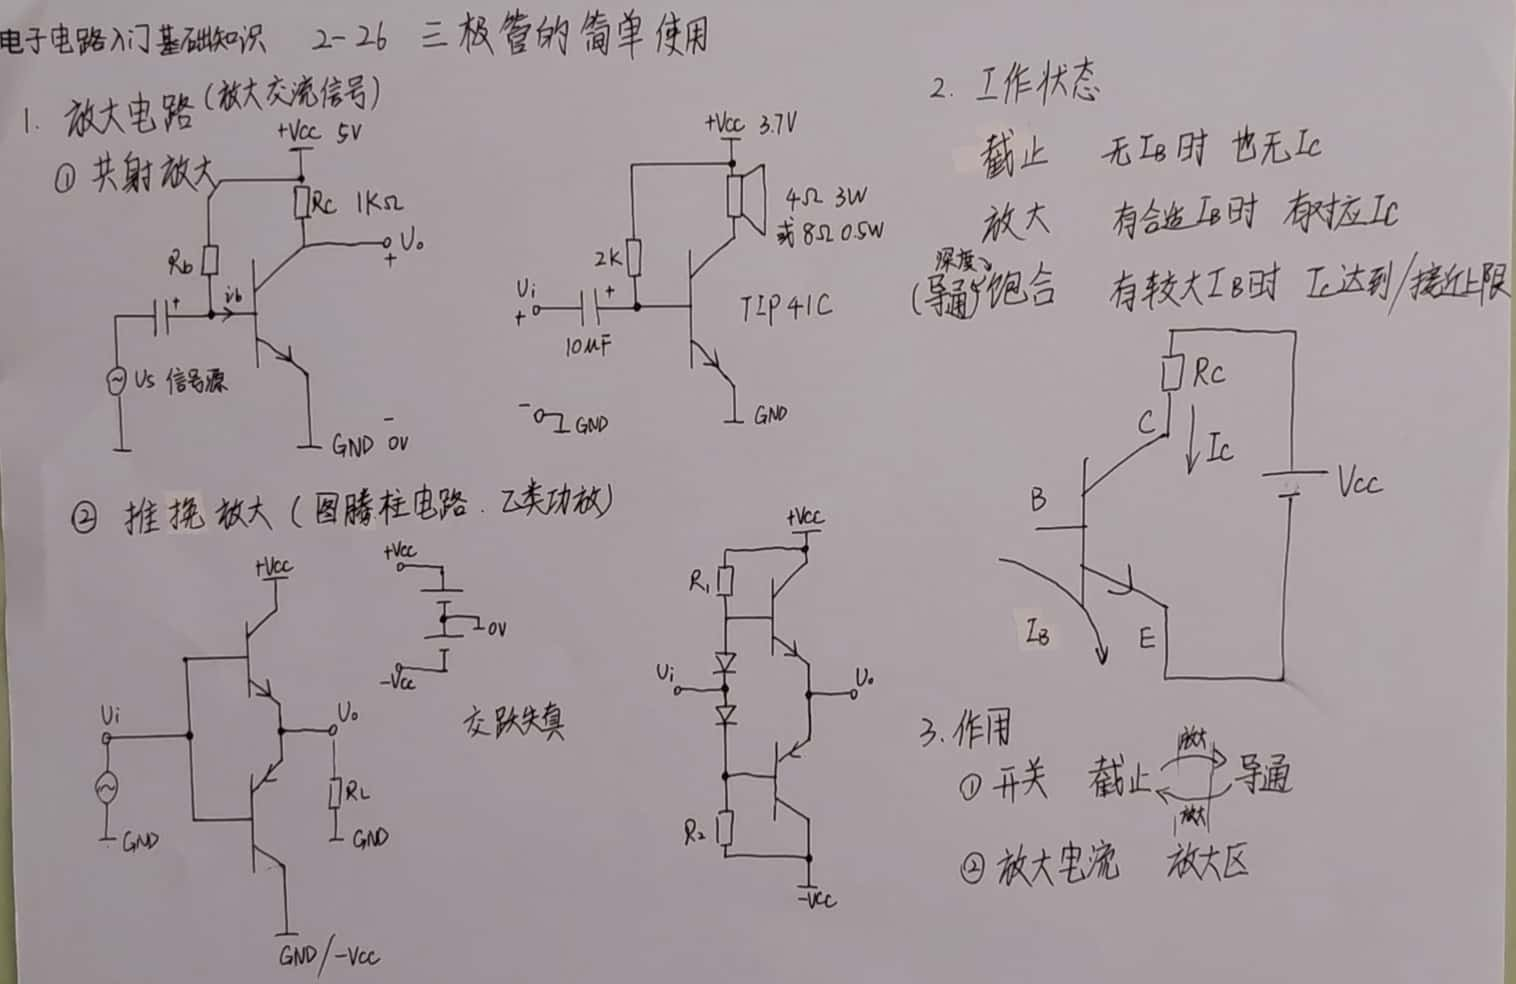 电子电路入门基础知识 2-26 三极管的简单使用
1. 放大电路(放大交流信号)
① 共射放大
+Vcc 5V
Rc 1KΩ
Rb
ib
+
U₀
+
Us 信号源
GND 0V
-
+Vcc 3.7V
4Ω 3W
或8Ω 0.5W
2K
Ui
+
+
10μF
TIP41C
- GND
GND
② 推挽放大(图腾柱电路.乙类功放)
+Vcc
Ui
U₀
RL
GND
GND
GND/-Vcc
+Vcc
0V
-Vcc
交跃失真
+Vcc
R₁
Ui
U₀
R₂
-Vcc
2. 工作状态
截止 无IB时 也无Ic
放大 有合适IB时 有对应Ic
深度
(导通)饱合 有较大IB时 Ic达到/接近上限
Rc
C
Ic
B
Vcc
IB
E
3. 作用
① 开关 截止 放大 导通
放大
② 放大电流 放大区